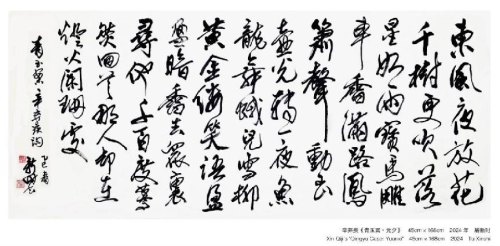 東風夜放花
千樹更吹落
星如雨寶馬雕
車香滿路鳳
簫聲動玉
壺光轉一夜魚
龍舞蛾兒雪柳
黃金縷笑語盈
盈暗香去眾裏
尋他千百度驀
然回首那人卻在
燈火闌珊處
青玉案 辛棄疾詞
辛弃疾《青玉案·元夕》 45cm x 168cm 2024 年
Xin Qiji's "Qingyu Case: Yuanxi" 45cm x 168cm 2024